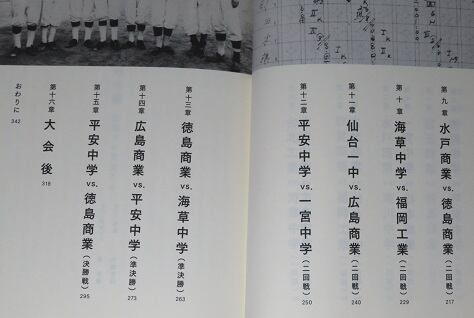 第九章
水戸商業 vs. 徳島商業(二回戦)
217
第十章
海草中学 vs. 福岡工業(二回戦)
229
第十一章
仙台一中 vs. 広島商業(二回戦)
240
第十二章
平安中学 vs. 一宮中学(二回戦)
250
第十三章
徳島商業 vs. 海草中学(準決勝)
263
第十四章
広島商業 vs. 平安中学(準決勝)
273
第十五章
平安中学 vs. 徳島商業(決勝戦)
295
第十六章
大会後
318
おわりに
342